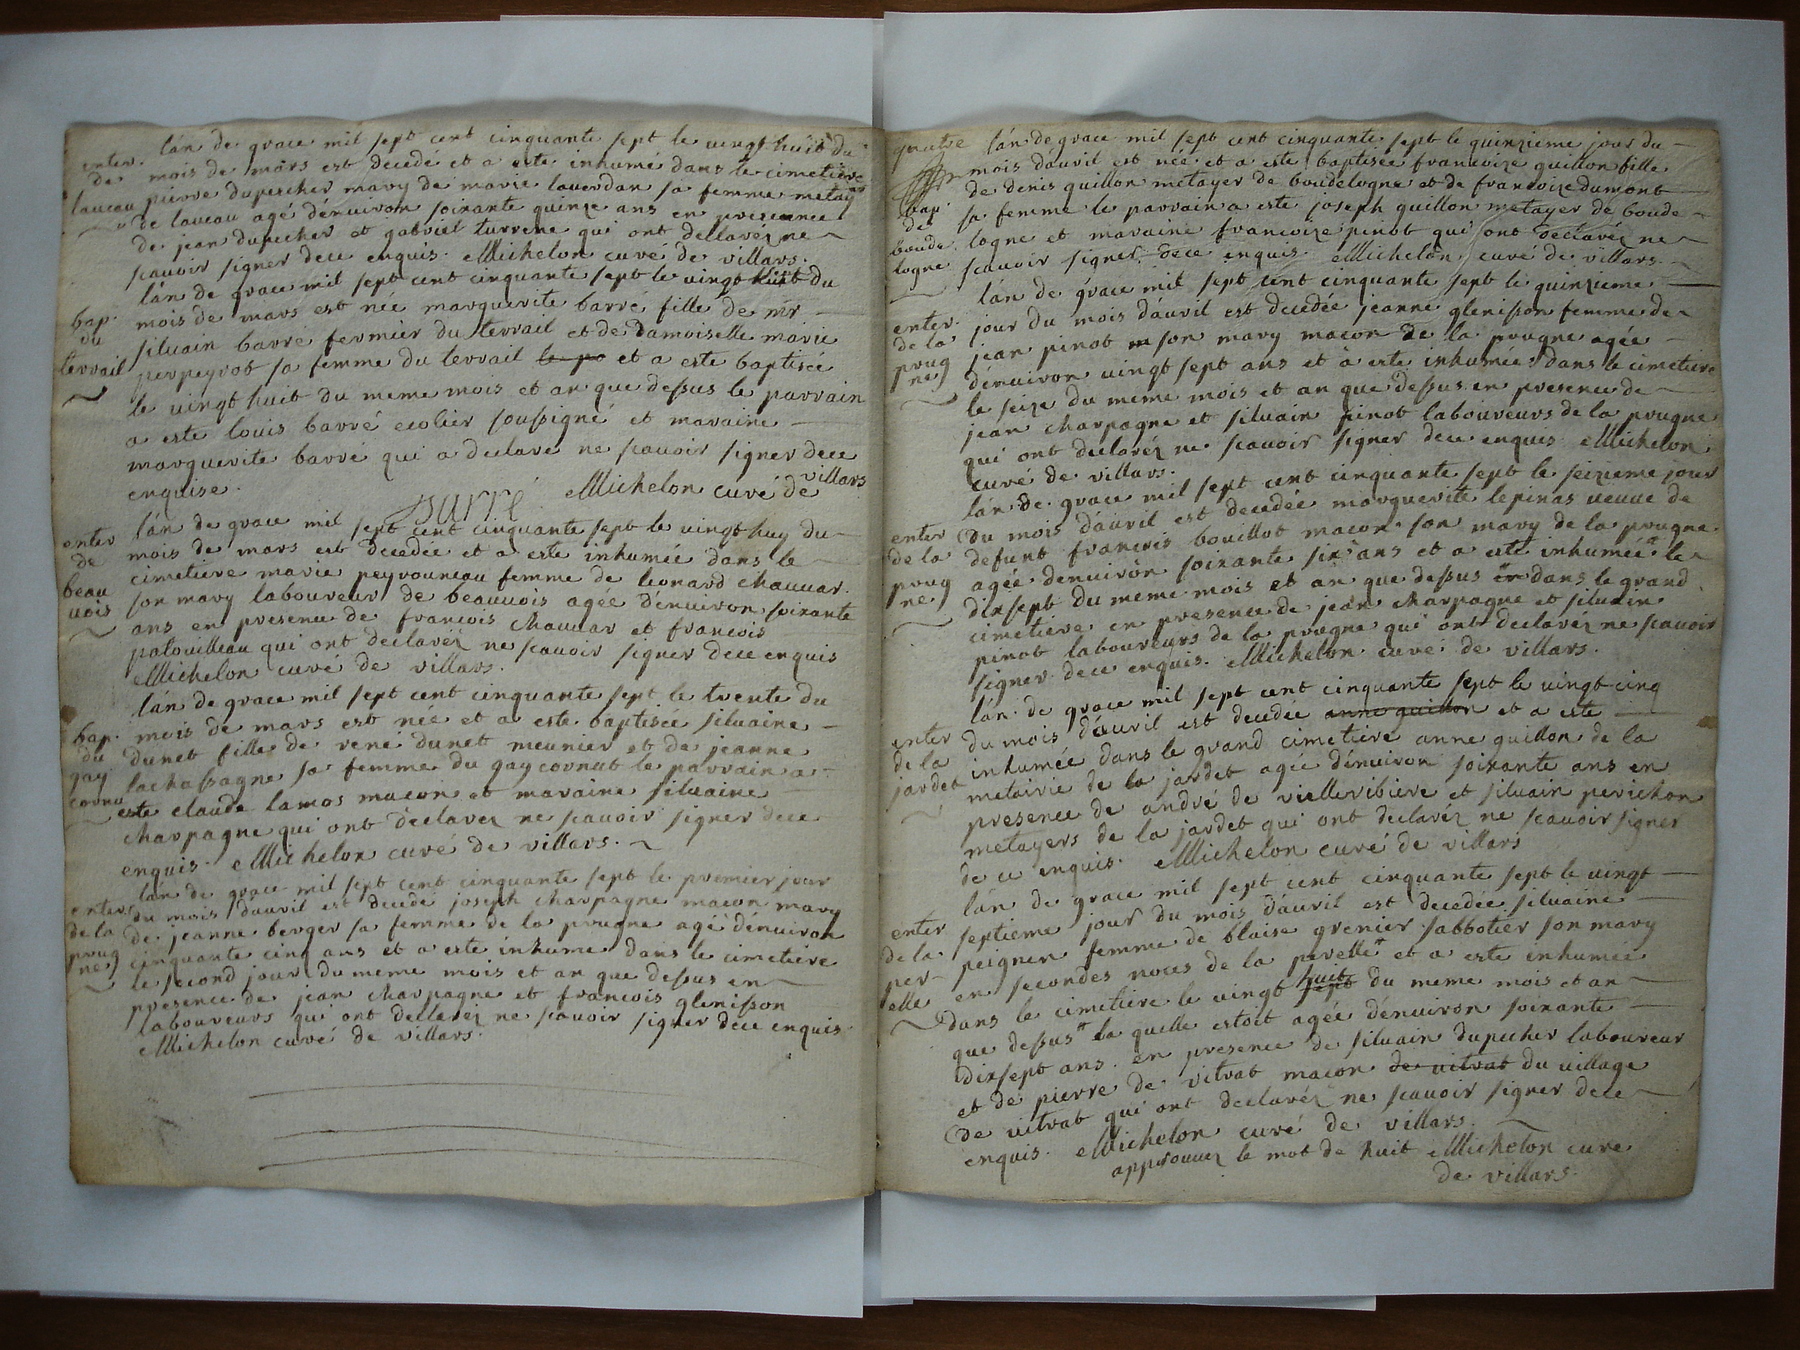 lán de grace mil sept cent cinquante sept le vingt huit du
enter. mois de mars est decedé et a este inhumé dans le cimetiere
de pierre dupeicher mary de marie laverdan sa femme metayer
laueau de laueau agé dénuiron soixante quinze ans en presence
de jean dupeicher et gabriel turrene qui ont dellaréz ne
scauoir signer dece enquis. Michelon curé de villars.
lán de grace mil sept cent cinquante sept le vingt huit du
bap. mois de mars est née marguerite barre, fille de mr
du siluain barré fermier du terrail et de damoiselle marie
terrail perpeyrot sa femme du terrail et a este baptisée
le vingt huit du meme mois et an que dessus le parrain
a este louis barré ecolier soussigné et maraine
marguerite barré qui a declaré ne scauoir signer dece
enquise. barré Michelon curé de villars
lán de grace mil sept cent cinquante sept le vingt huy du
enter mois de mars est decedée et a este inhumée dans le
de cimetiere marie peyrouneau femme de leonard chauuar.
beau son mary laboureur de beauuois agée dénuiron soixante
uois ans en presence de francois chauuar et francois
patouilleau qui ont declaréz ne scauoir signer dece enquis
Michelon curé de villars.
lán de grace mil sept cent cinquante sept le trente du
bap. mois de mars est née et a este baptisée siluaine
du dunet fille de rené dunet meunier et de jeanne
gay lachassagne sa femme du gay cornut le parrain a
cornu este claude lamos macon et maraine siluaine
charpagne qui ont declarez ne scauoir signer dece
enquis. Michelon curé de villars.
lán de grace mil sept cent cinquante sept le premier jour
enter. du mois dauril est decedé joseph charpagne macon mary
de la de jeanne berger sa femme de la prugne agé dénuiron
prug cinquante cinq ans et a este inhumé dans le cimetiere
ne le second jour du meme mois et an que dessus en
presence de jean charpagne et francois glenisson
laboureurs qui ont dellarez ne scauoir signer dece enquis.
Michelon curé de villars.
quatre lán de grace mil sept cent cinquante sept le quinzieme jour du
mois dauril est née et a este baptisée francoize quillon fille
de denis quillon metayer de boudelogne et de francoize dumont
bap. sa femme le parrain a este joseph quillon metayer de boude
de logne et maraine francoize pinot qui ont declaréz ne
boude scauoir signer dece enquis. Michelon curé de villars.
logne
lán de grace mil sept cent cinquante sept le quinzieme
enter. jour du mois dáuril est decedée jeanne glenisson femme de
de la jean pinot son mary macon de la prugne agée
prug dénuiron vingt sept ans et a este inhumée dans le cimetiere
ne le seize du meme mois et an que dessus en presence de
jean charpagne et siluain pinot laboureurs de la prugne
qui ont declaréz ne scauoir signer dece enquis Michelon
curé de villars.
lán de grace mil sept cent cinquante sept le seizieme jour
enter du mois dáuril est decedée marguerite lepinas ueuue de
de la defunt francois bouillot macon son mary de la prugne
prug agée denuirón soixante six ans et a este inhumée le
ne dixsept du meme mois et an que dessus dans le grand
cimetiere en presence de jean charpagne et siluain
pinot laboureurs de la prugne qui ont declarez ne scauoir
signer dece enquis. Michelon curé de villars.
lán de grace mil sept cent cinquante sept le vingt cinq
enter du mois dáuril est decedée anne quillon et a este
de la inhumée dans le grand cimetiere anne quillon de la
jardet metairie de la jardet agée dénuiron soixante ans en
presence de andré de vielleribiere et siluain perichon
metayers de la jardet qui ont declaréz ne scauoir signer
de ce enquis. Michelon curé de villars
lán de grace mil sept cent cinquante sept le vingt
enter septieme jour du mois dáuril est decedée siluaine
de la peignen femme de blaise grenier sabbotier son mary
per en secondes noces de la perelle et a este inhumée
elle dans le cimetiere le vingt sept huit du meme mois et an
que dessus la quelle estoit agée dénuiron soixante
dixsept ans. en presence de siluain dupecher laboureur
et de pierre de vitrat macon de vitrat du village
de vitrat qui ont declaréz ne scauoir signer dece
enquis. Michelon curé de villars.
approuuez le mot de huit Michelon curé
de villars.